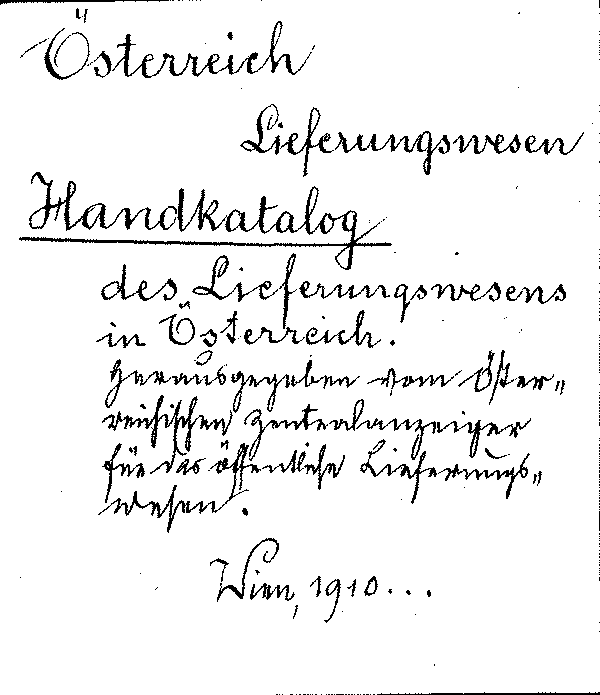 Österreich
Lieferungswesen
Handkatalog
des Lieferungswesens
in Österreich.
Herausgegeben vom Öster-
reichischen Zentralanzeiger
für das öffentliche Lieferungs-
wesen.
Wien, 1910...